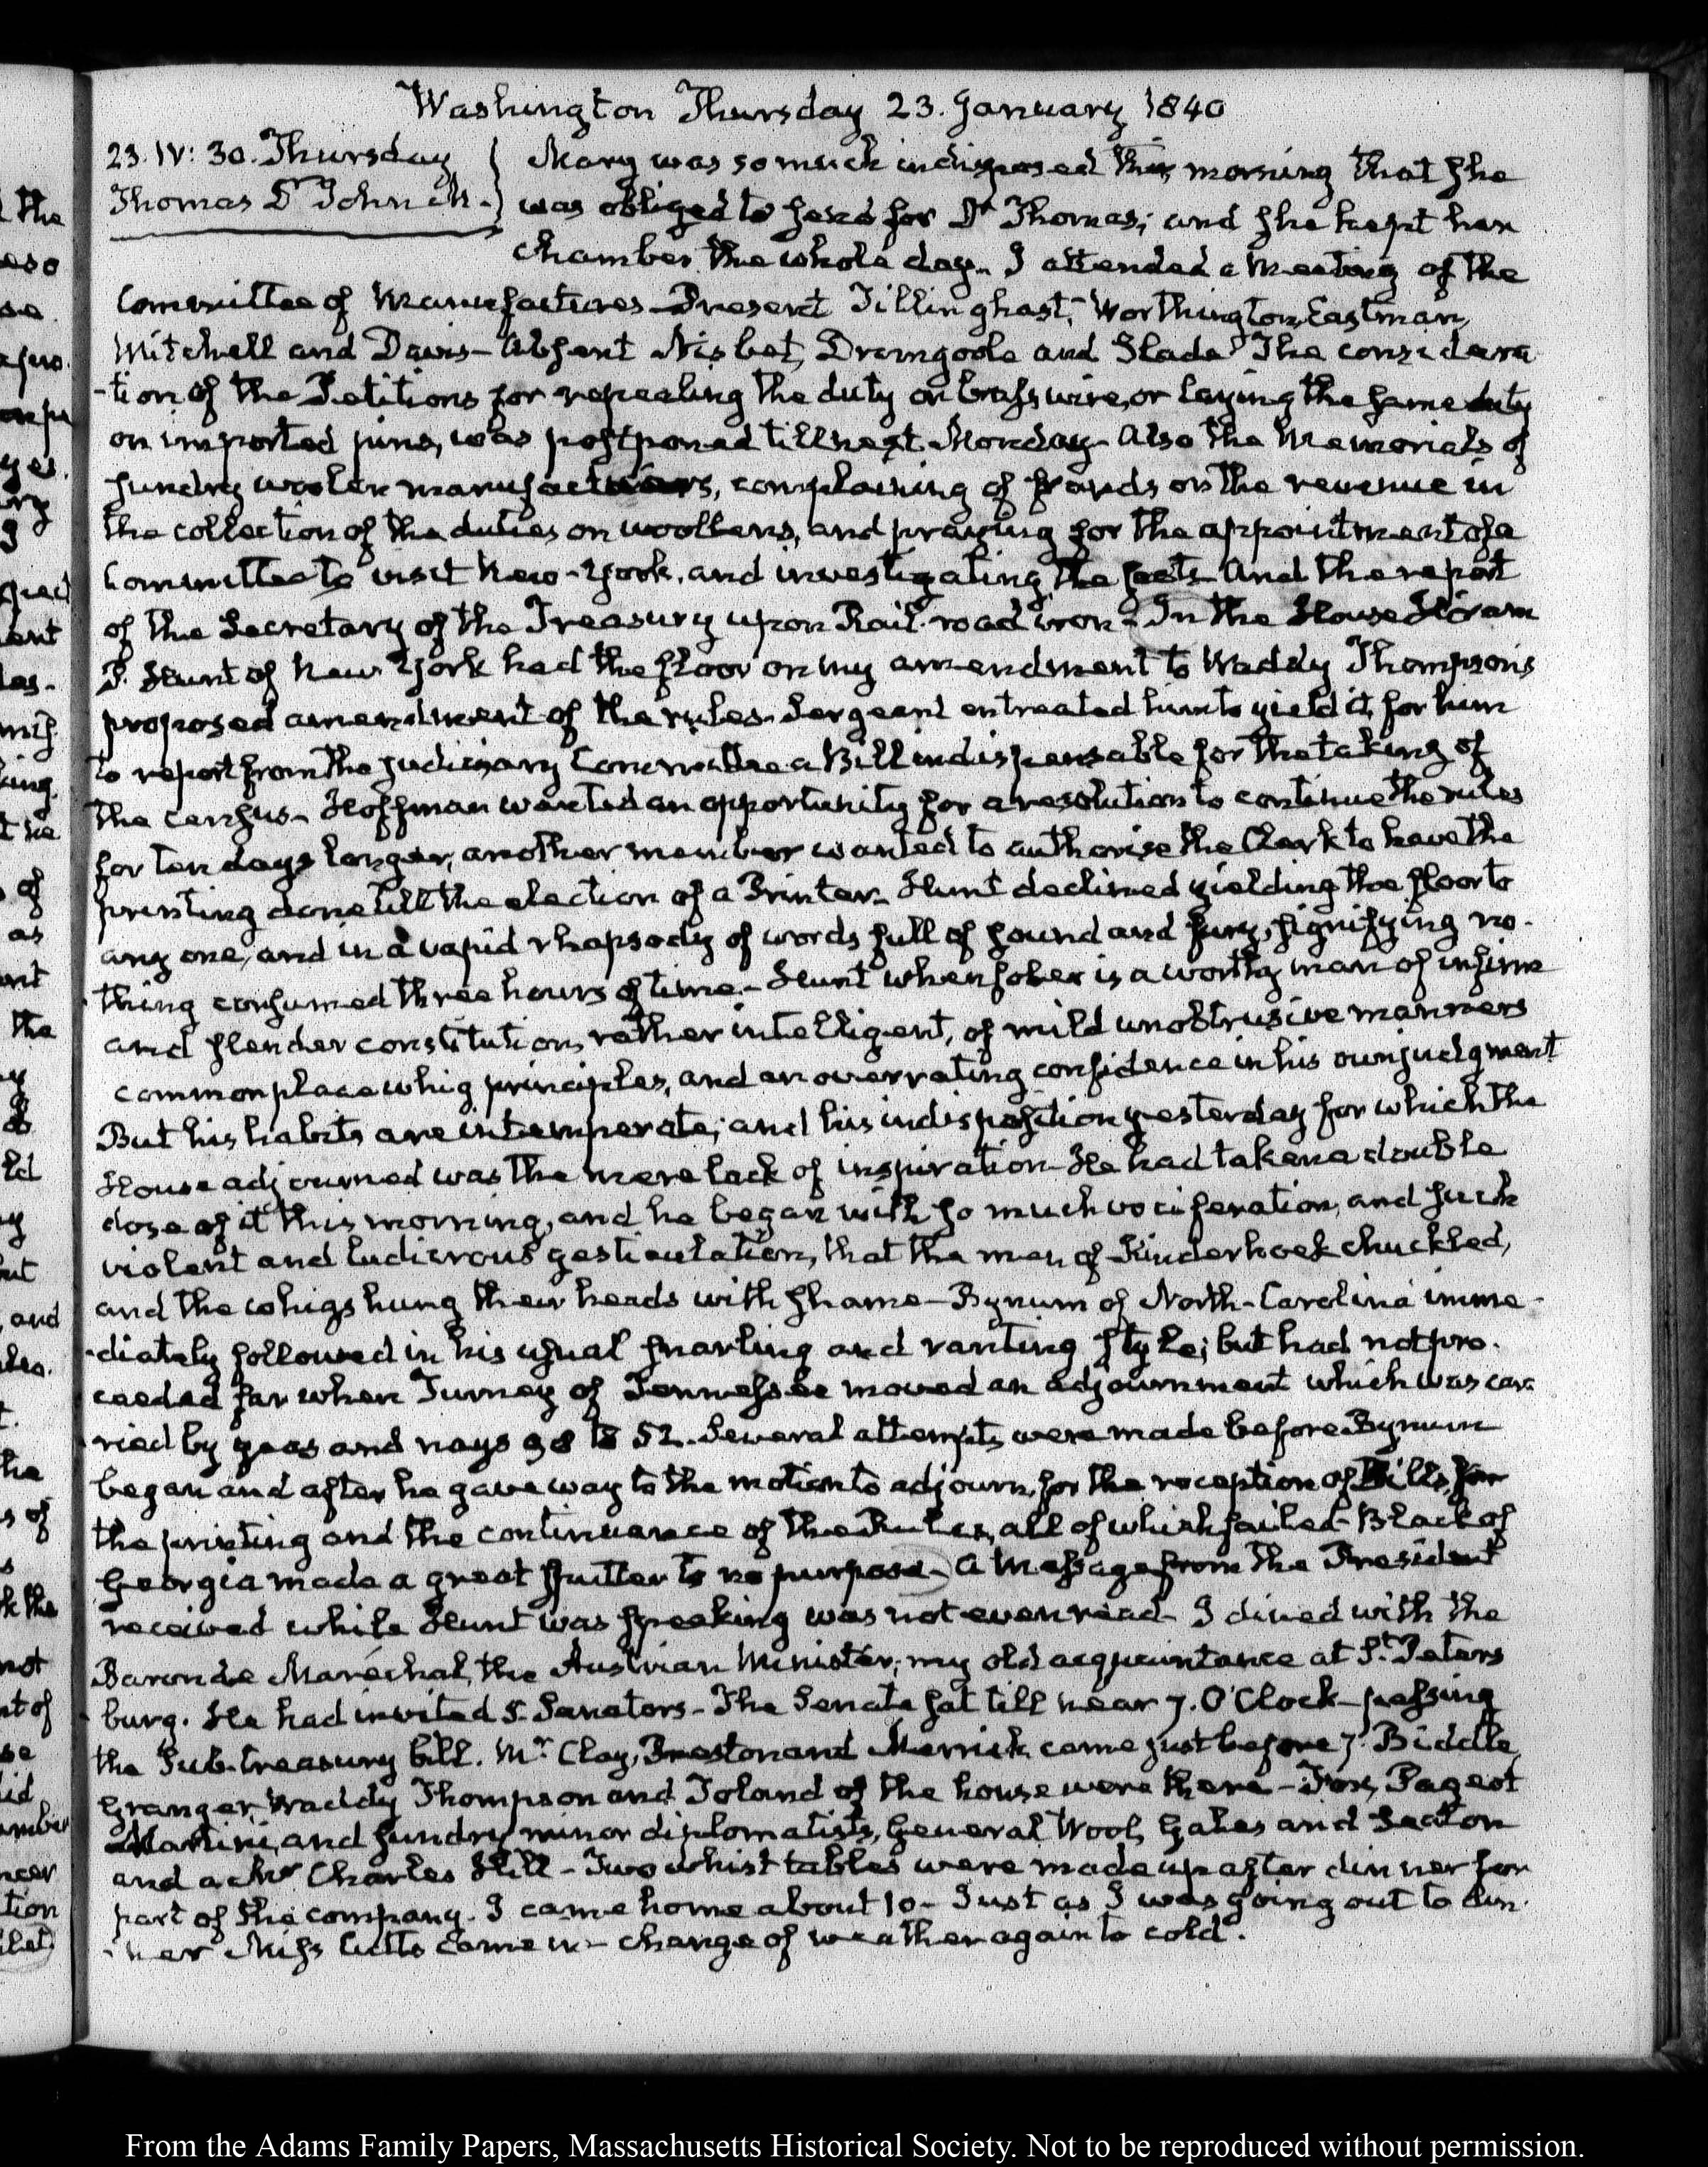 Washington Thursday 23. January 1840
23. IV: 30. Thursday
Thomas Dr John H.
Mary was so much indisposed this morning that she
was obliged to send for Dr Thomas; and she kept her
chamber the whole day. I attended a Meeting of the
Committee of Manufactures – Present Tillinghast, Worthington, Eastman,
Mitchell and Davis – Absent Nisbet, Dromgoole and Slade. The considera
-tion of the Petitions for repealing the duty on brass wire, or laying the same duty
on imported pins, was postponed till next Monday – Also the Memorials of
sundry woolen manufacturers, complaining of frauds on the revenue in
the collection of the duties on woollens, and praying for the appointment of a
Committee to visit New-York, and investigating the facts – And the report
of the Secretary of the Treasury upon Rail-road iron – In the House Hiram
P. Hunt of New York had the floor on my amendment to Waddy Thompson's
proposed amendment of the rules. Sergeant entreated him to yield it, for him
to report from the Judiciary Committee a Bill indispensable for the taking of
the census – Hoffman wanted an opportunity for a resolution to continue the rules
for ten days longer; another member wanted to authorise the Clerk to have the
printing done till the election of a Printer – Hunt declined yielding the floor to
any one, and in a vapid rhapsody of words full of sound and fury, signifying no-
thing consumed three hours of time. – Hunt when sober is a worthy man of infirm
and slender constitution, rather intelligent, of mild unobtrusive manners
common place whig principles, and an overrating confidence in his own judgment
But his habits are intemperate; and his indisposition yesterday for which the
House adjourned was the mere lack of inspiration – He had taken a double
dose of it this morning, and he began with so much vociferation, and such
violent and ludicrous gesticulation, that the men of Kinderhook chuckled,
and the whigs hung their heads with shame – Bynum of North-Carolina imme-
-diately followed in his usual snarling and ranting style; but had not pro-
ceeded far when Turney of Tennessee moved an adjournment which was car
ried by yeas and nays 98 to 52. Several attempts were made before Bynum
began and after he gave way to the motion to adjourn, for the reception of Bills, for
the printing and the continuance of the Rules, all of which failed – Black of
Georgia made a great splutter to no purpose – A Message from the President
received while Hunt was speaking was not even read – I dined with the
Baron de Maréchal, the Austrian Minister, my old acquaintance at St. Peters
burg. He had invited 5 Senators – The Senate sat till near 7. O'Clock – passing
the Sub-treasury bill. Mr Clay, Preston and Merrick came just before 7. Biddle,
Granger, Waddy Thompson and Toland of the house were there – Fox, Pageot
Martini, and sundry minor diplomatists, General Wool, Gales and Seaton
and a Mr Charles Hill – Two whist tables were made up after dinner for
part of the company. I came home about 10 – Just as I was going out to din-
-ner Miss Cutts came in – change of weather again to cold.
From the Adams Family Papers, Massachusetts Historical Society. Not to be reproduced without permission.